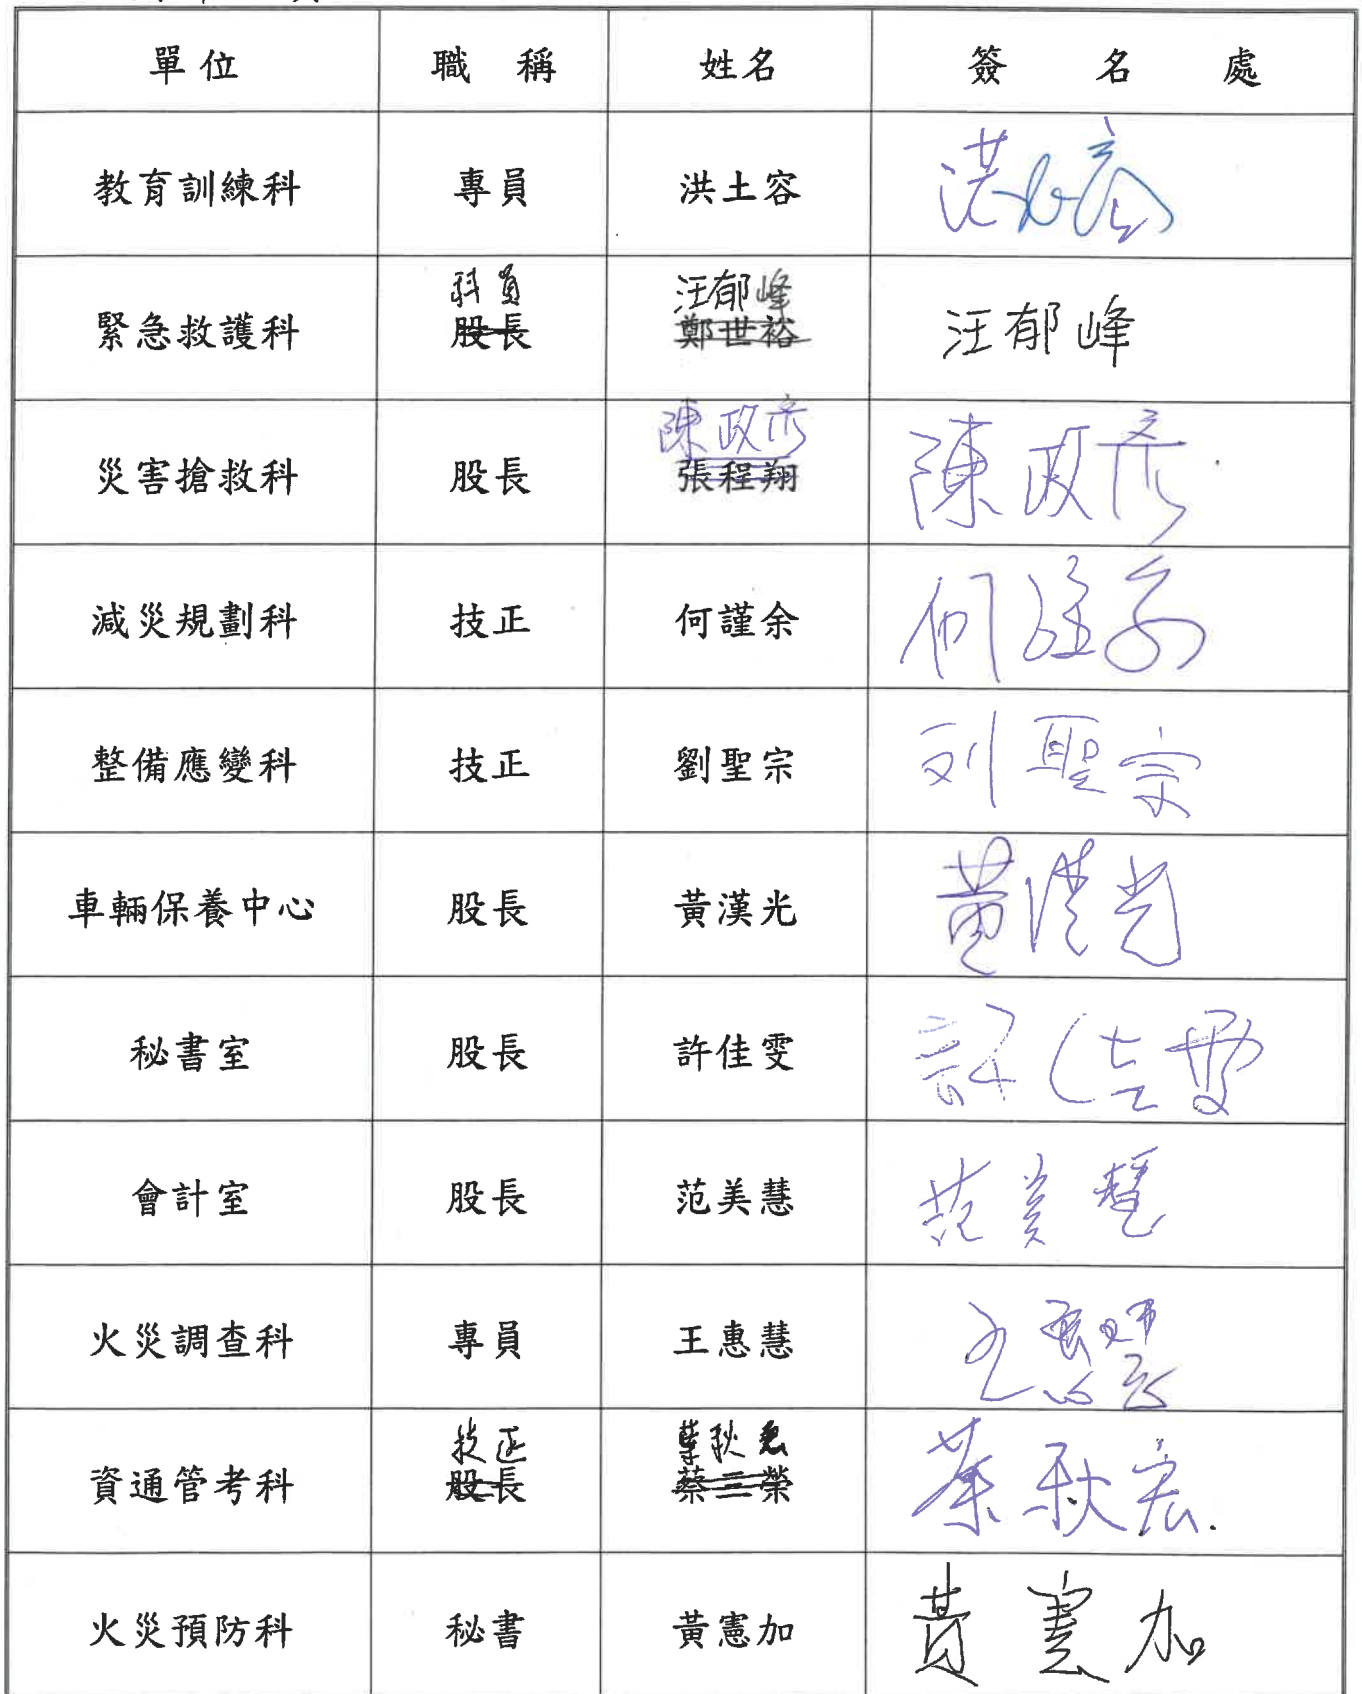 單位 職稱 姓名 簽名處
教育訓練科 專員 洪土容 洪土容
科員 汪郁峰
緊急救護科 股長 鄭世裕 汪郁峰
陳政彥
災害搶救科 股長 張程翔 陳政彥
減災規劃科 技正 何謹余 何謹余
整備應變科 技正 劉聖宗 刘聖宗
車輛保養中心 股長 黃漢光 黃漢光
秘書室 股長 許佳雯 許佳雯
會計室 股長 范美慧 范美慧
火災調查科 專員 王惠慧 王惠慧
技正 葉秋宏
資通管考科 股長 蔡三榮 葉秋宏
火災預防科 秘書 黃憲加 黃憲加